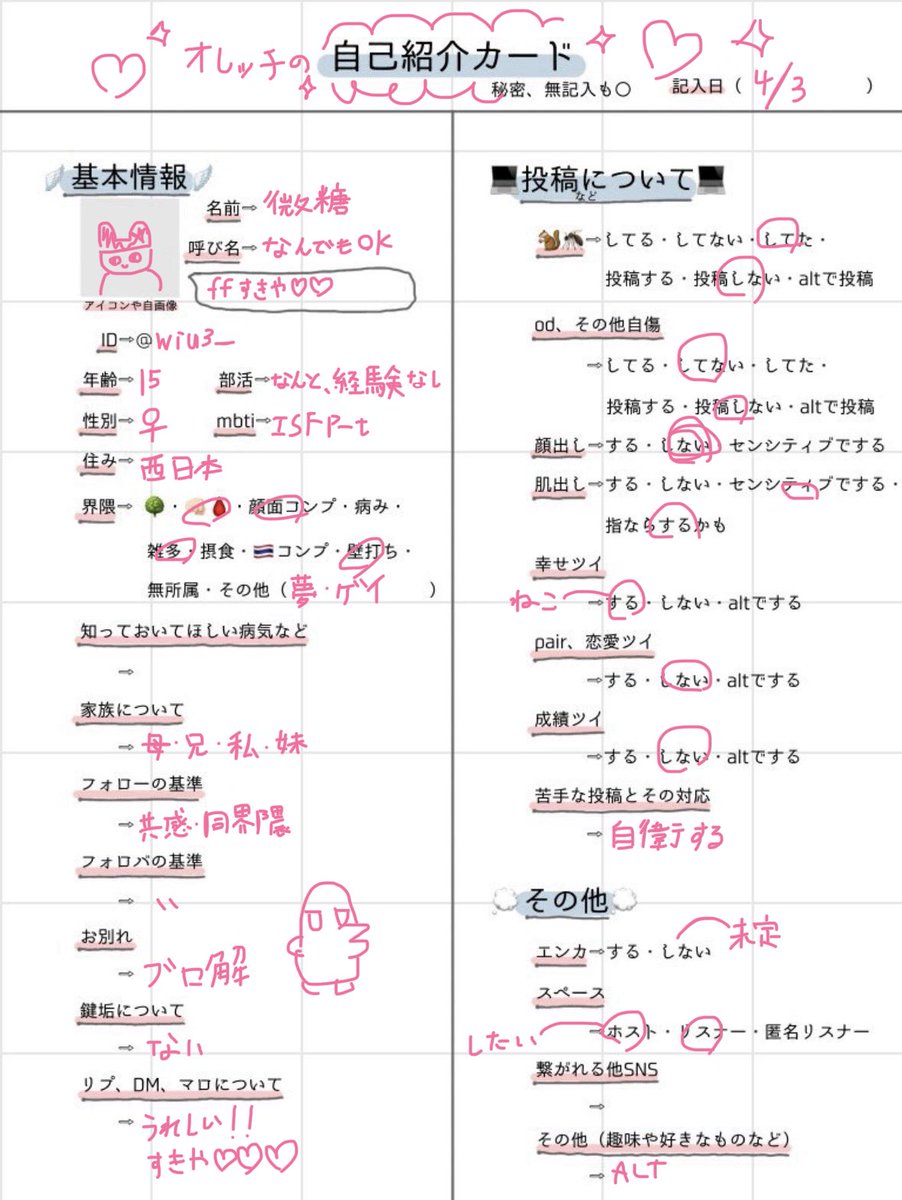 オレッチの 自己紹介カード
秘密、無記入も〇 記入日 ( 4/3 )
基本情報
名前⇒ 微糖
呼び名⇒ なんでもOK
ffすきや♡♡
アイコンや自画像
ID⇒@wiu3_
年齢⇒15 部活⇒なんと、経験なし
性別⇒♀ mbti⇒ISFP-t
住み⇒西日本
界隈⇒🌳・🧠🩸・顔面コンプ・病み・
雑多・摂食・🇹🇭コンプ・壁打ち・
無所属・その他 ( 夢・ゲイ )
知っておいてほしい病気など
⇒
家族について
⇒母・兄・私・妹
フォローの基準
⇒共感・同界隈
フォロバの基準
⇒ 〃
お別れ
⇒ブロ解
鍵垢について
⇒ない
リプ、DM、マロについて
⇒うれしい!!
すきや♡♡♡
投稿について
など
🐿️🦟⇒してる・してない・してた・
投稿する・投稿しない・altで投稿
od、その他自傷
⇒してる・してない・してた・
投稿する・投稿しない・altで投稿
顔出し⇒する・しない・センシティブでする
肌出し⇒する・しない・センシティブでする・
指ならするかも
幸せツイ
ねこ ⇒する・しない・altでする
pair、恋愛ツイ
⇒する・しない・altでする
成績ツイ
⇒する・しない・altでする
苦手な投稿とその対応
⇒自衛する
その他
エンカ⇒する・しない 未定
スペース
したい ⇒ホスト・リスナー・匿名リスナー
繋がれる他SNS
⇒
その他（趣味や好きなものなど）
⇒ALT